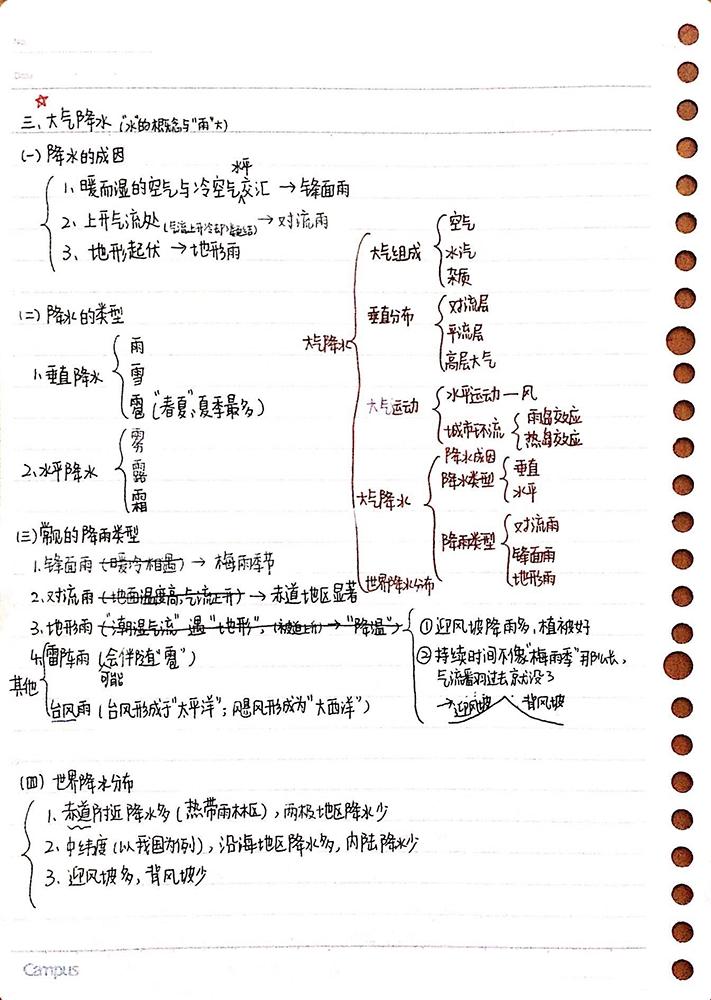 No.
Date
☆
三、大气降水 ("水"的概念与"雨"大)
(一) 降水的成因
水平
1、暖而湿的空气与冷空气交汇 → 锋面雨
2、上升气流处 → 对流雨
3、地形起伏 → 地形雨
(二) 降水的类型
1、垂直降水
雨
雪
雹 ("春夏"、夏季最多)
2、水平降水
雾
露
霜
大气降水
大气组成
空气
水汽
杂质
垂直分布
对流层
平流层
高层大气
大气运动
水平运动—风
城市环流
雨岛效应
热岛效应
大气降水
降水成因
降水类型
垂直
水平
降雨类型
对流雨
锋面雨
地形雨
世界降水分布
(三) 常见的降雨类型
1、锋面雨 (暖冷相遇) → 梅雨季节
2、对流雨 (地面温度高,气流上升) → 赤道地区显著
3、地形雨 ("潮湿气流"遇"地形", (被迫上升) → "降温")
① 迎风坡降雨多,植被好
② 持续时间不像"梅雨季"那么长,
气流翻羽过去就没了
→ 迎风坡 背风坡
其他
4、雷阵雨 (会伴随"雹")
可能
台风雨 (台风形成于"太平洋"; 飓风形成为"大西洋")
(四) 世界降水分布
1、赤道附近降水多 (热带雨林区), 两极地区降水少
2、中纬度 (以我国为例), 沿海地区降水多, 内陆降水少
3、迎风坡多, 背风坡少
Campus